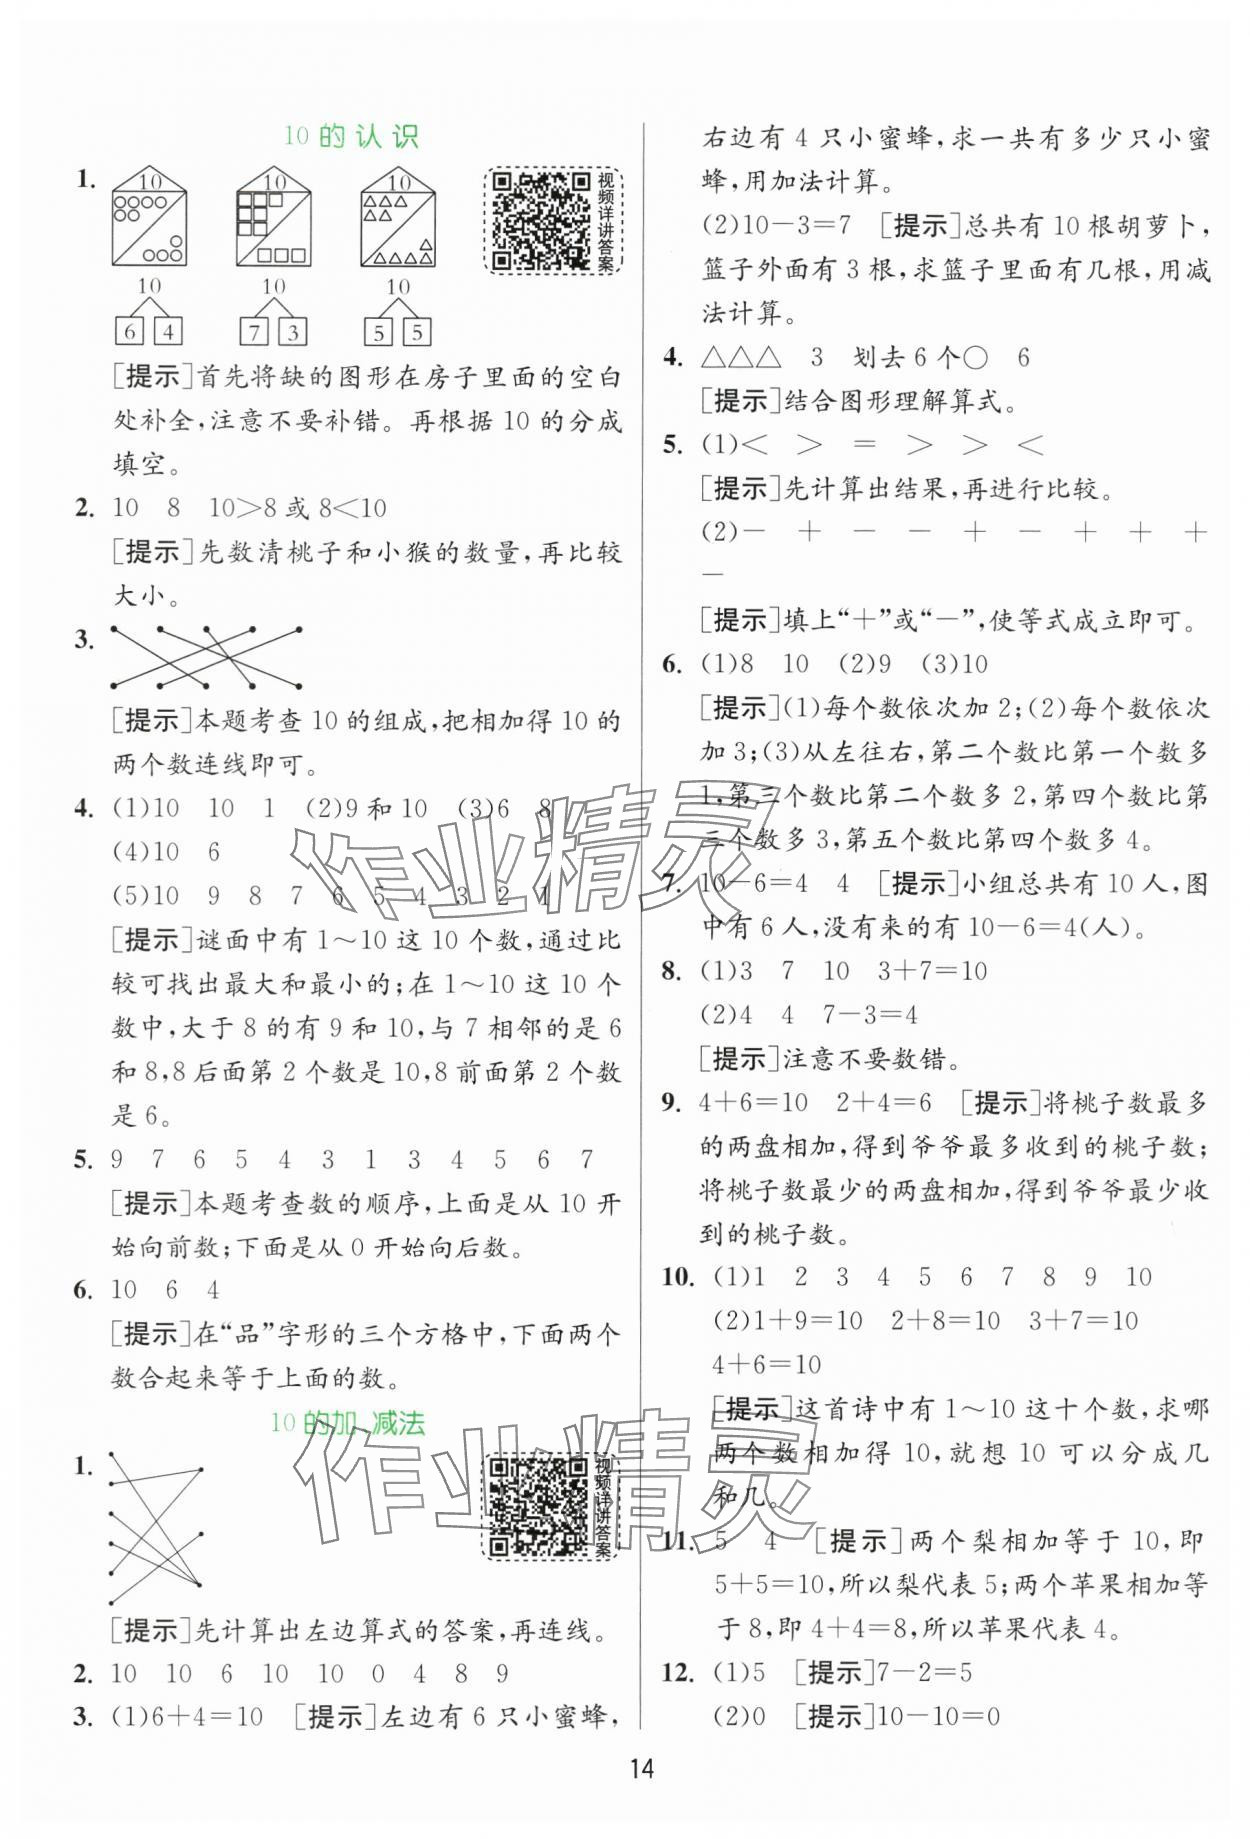 10 的 认 识
1.
10 10 10
视频详讲答案
10 10 10
6 4 7 3 5 5
[提示]首先将缺的图形在房子里面的空白
处补全,注意不要补错。再根据 10 的分成
填空。
2. 10 8 10>8 或 8<10
[提示]先数清桃子和小猴的数量,再比较
大小。
3.
[提示]本题考查 10 的组成,把相加得 10 的
两个数连线即可。
4. (1)10 10 1 (2)9 和 10 (3)6 8
(4)10 6
(5)10 9 8 7 6 5 4 3 2 1
[提示]谜面中有 1～10 这 10 个数,通过比
较可找出最大和最小的;在 1～10 这 10 个
数中,大于 8 的有 9 和 10,与 7 相邻的是 6
和 8,8 后面第 2 个数是 10,8 前面第 2 个数
是 6。
5. 9 7 6 5 4 3 1 3 4 5 6 7
[提示]本题考查数的顺序,上面是从 10 开
始向前数;下面是从 0 开始向后数。
6. 10 6 4
[提示]在“品”字形的三个方格中,下面两个
数合起来等于上面的数。
10 的加、减法
1.
视频详讲答案
[提示]先计算出左边算式的答案,再连线。
2. 10 10 6 10 10 0 4 8 9
3. (1)6+4=10 [提示]左边有 6 只小蜜蜂,
右边有 4 只小蜜蜂,求一共有多少只小蜜
蜂,用加法计算。
(2)10-3=7 [提示]总共有 10 根胡萝卜,
篮子外面有 3 根,求篮子里面有几根,用减
法计算。
4. △△△ 3 划去 6 个○ 6
[提示]结合图形理解算式。
5. (1)< > = > > <
[提示]先计算出结果,再进行比较。
(2)- + - - + - + + +
-
[提示]填上“+”或“-”,使等式成立即可。
6. (1)8 10 (2)9 (3)10
[提示](1)每个数依次加 2;(2)每个数依次
加 3;(3)从左往右,第二个数比第一个数多
1,第三个数比第二个数多 2,第四个数比第
三个数多 3,第五个数比第四个数多 4。
7. 10-6=4 4 [提示]小组总共有 10 人,图
中有 6 人,没有来的有 10-6=4(人)。
8. (1)3 7 10 3+7=10
(2)4 4 7-3=4
[提示]注意不要数错。
9. 4+6=10 2+4=6 [提示]将桃子数最多
的两盘相加,得到爷爷最多收到的桃子数;
将桃子数最少的两盘相加,得到爷爷最少收
到的桃子数。
10. (1)1 2 3 4 5 6 7 8 9 10
(2)1+9=10 2+8=10 3+7=10
4+6=10
[提示]这首诗中有 1～10 这十个数,求哪
两个数相加得 10,就想 10 可以分成几
和几。
11. 5 4 [提示]两个梨相加等于 10,即
5+5=10,所以梨代表 5;两个苹果相加等
于 8,即 4+4=8,所以苹果代表 4。
12. (1)5 [提示]7-2=5
(2)0 [提示]10-10=0
14
作业精灵
作业精灵